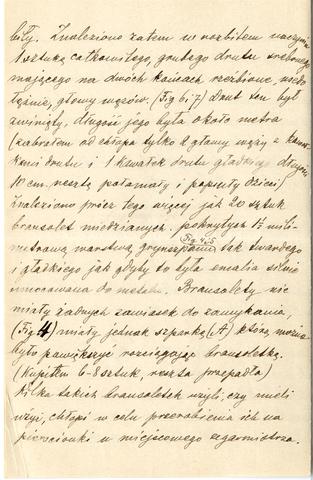 były. Znaleziono zatem w rozbitem naczyniu
1 sztukę całkowitego, grubego drutu srebrnego
mającego na dwóch końcach rzeźbione,
głowy wężów. (Fig 6 i 7) Drut ten był
zwinięty, długość jego była około metra
(zabrałem od chłopa tylko 2 głowy węży z kawał
kami drutu i 1 kawałek drutu gładkiego długi
10 cm. resztę połamały i popsuły dzieci)
Znaleziono prócz tego więcej jak 20 sztuk
bransolet miedzianych. pokrytych 1½ mili-
metrową warstwą grynszpanu (Fig. 4 i 5) tak twardego
i gładkiego jak gdyby to była emalia silnie
umocowana do metalu. Bransolety nie
miały żadnych zawiasek do zamykania,
(Fig 4) miały jednak szparkę (A) którą można
było powiększyć rozciągając bransoletkę.
(Kupiłem 6-8 sztuk, reszta przepadła)
Kilka takich bransoletek użyli, czy mieli
użyć, chłopi w celu przerobienia ich na
pierścionki u miejscowego zegarmistrza.